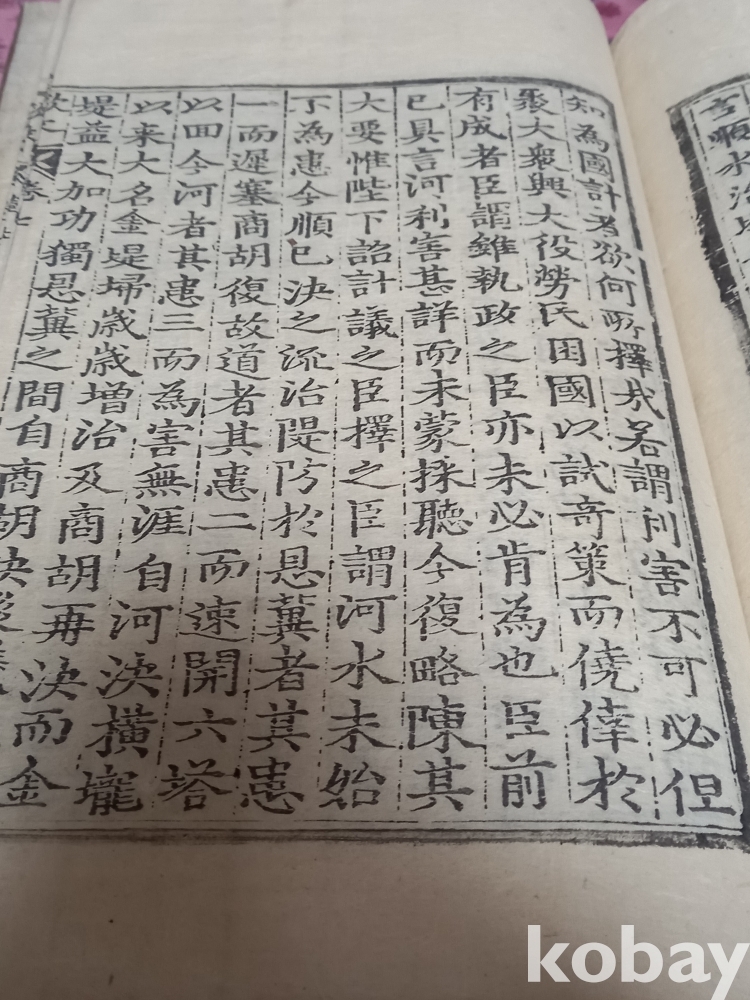 順水治
知為國計者欲何所擇哉若謂利害不可必但
聚大衆興大役勞民困國以試竒策而僥倖於
有成者臣謂雖執政之臣亦未必肯為也臣前
已具言河利害甚詳而未蒙採聽今復略陳其
大要惟陛下詔計議之臣擇之臣謂河水未始
不為患今順已決之流治隄防於恩冀者其患
一而遲塞商胡復故道者其患二而速開六塔
以回今河者其患三而為害無涯自河決橫壠
以来大名金堤埽歲歲增治及商胡再決而金
堤益大加功獨恩冀之間自商胡決後
kobay